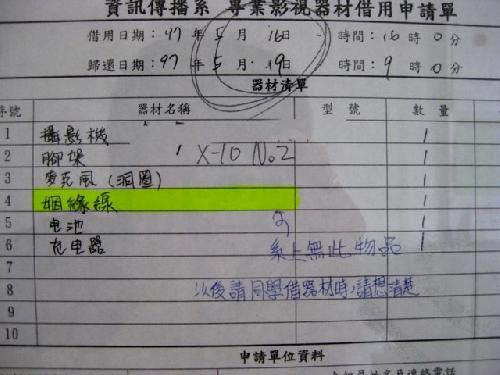 資訊傳播系 專業影視器材借用申請單
借用日期：97 年 5 月 16日 時間：10 時 0 分
歸還日期：97 年 5 月 19日 時間：9 時 0 分
器材清單
序號 器材名稱 型號 數量
1 攝影機 1
2 腳架 X-10 No.2 1
3 麥克風（洞圈） 1
4 姻緣線 1
5 电池 1
6 充电器 系上無此物品 1
7
8 以後請同學借器材時，請想清楚
9
10
申請單位資料